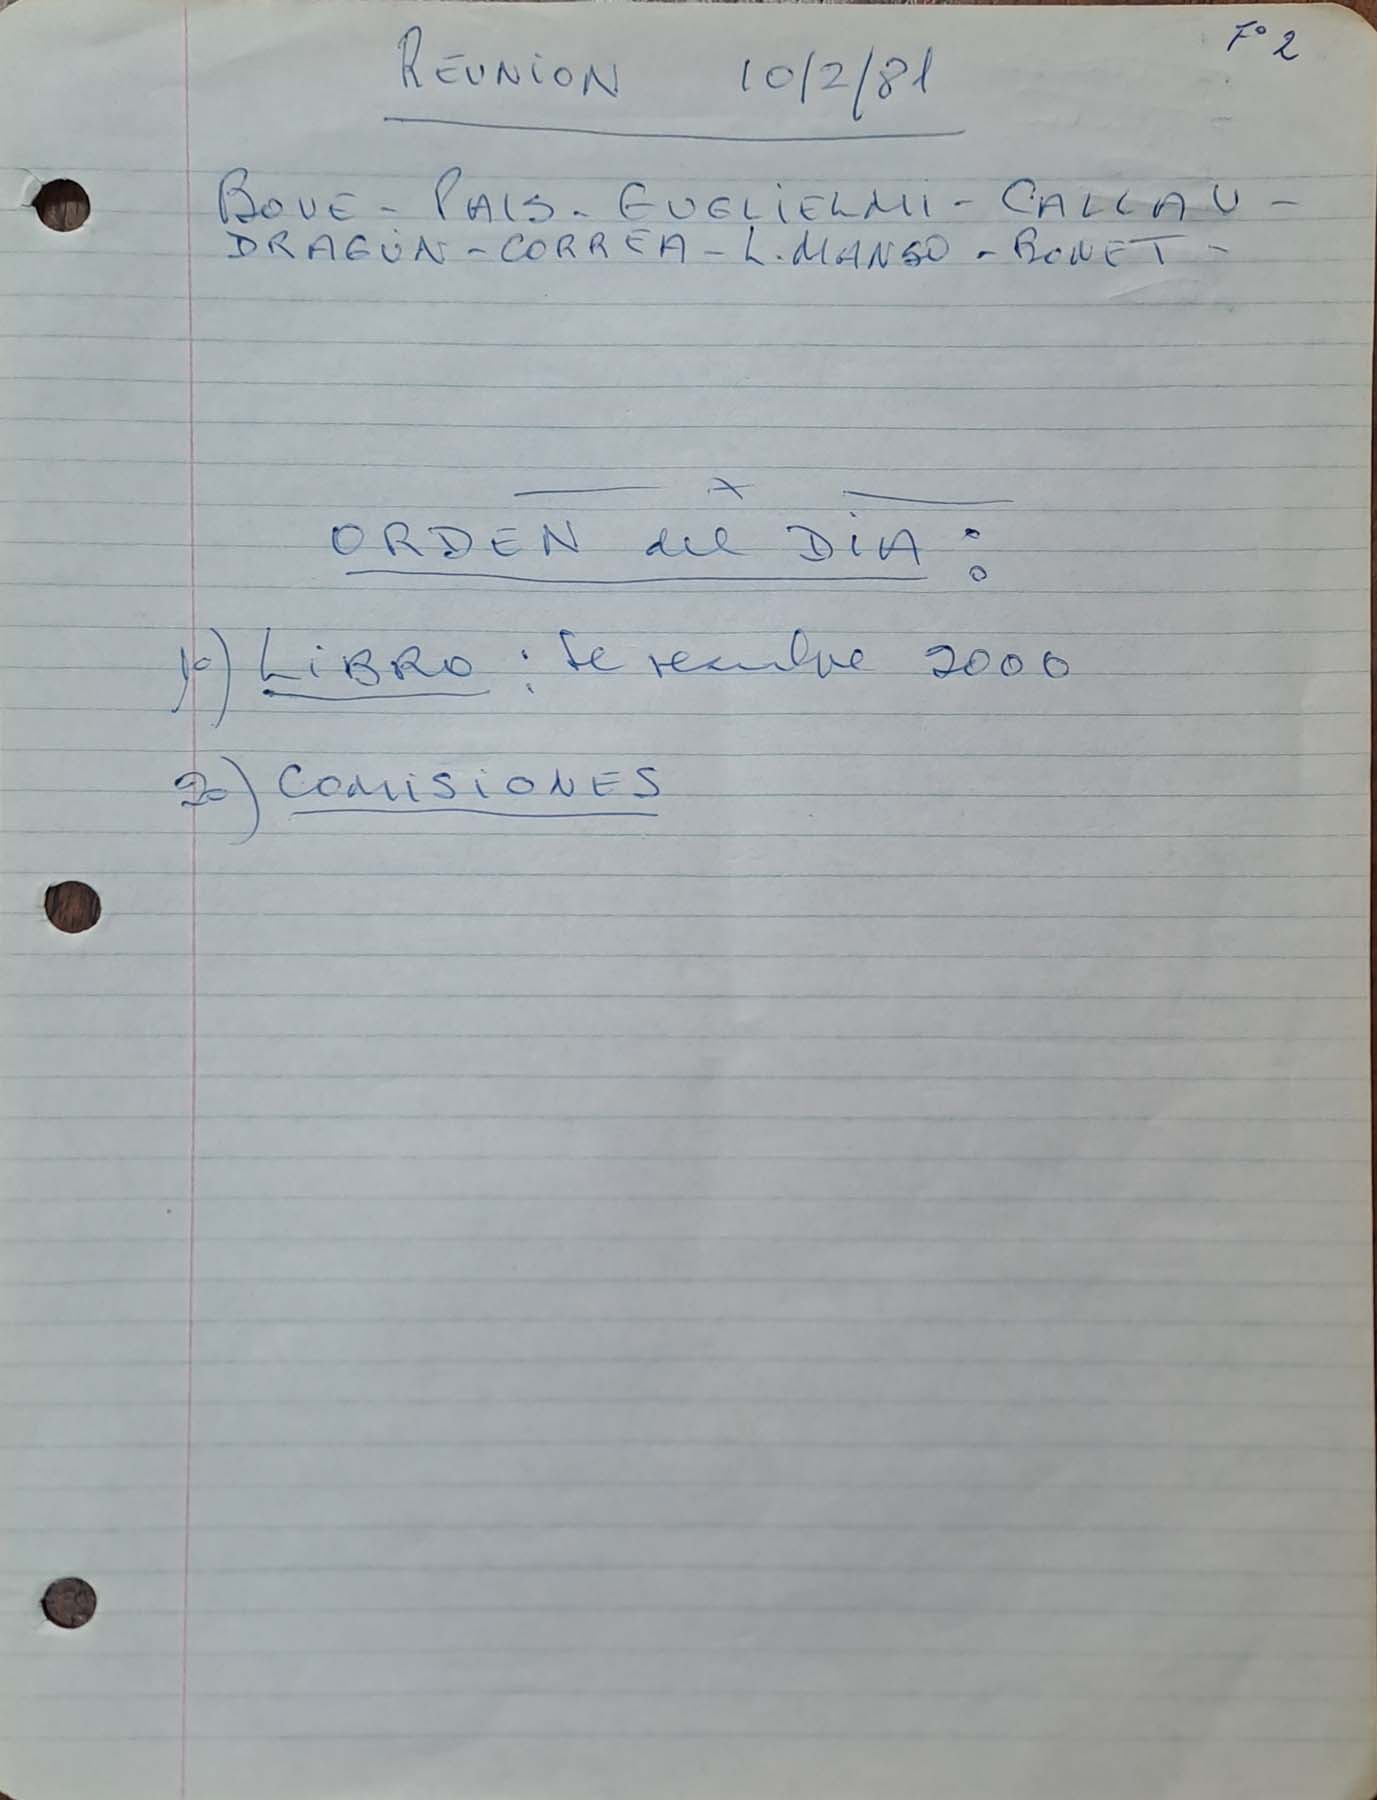 Fº 2
REUNION 10/2/81
BOVE - PAIS - GUGLIELMI - CALLAU -
DRAGÚN - CORREA - L. MANSO - BONET -
ORDEN del DIA:
1º) LIBRO: Se resuelve 2000
2º) COMISIONES